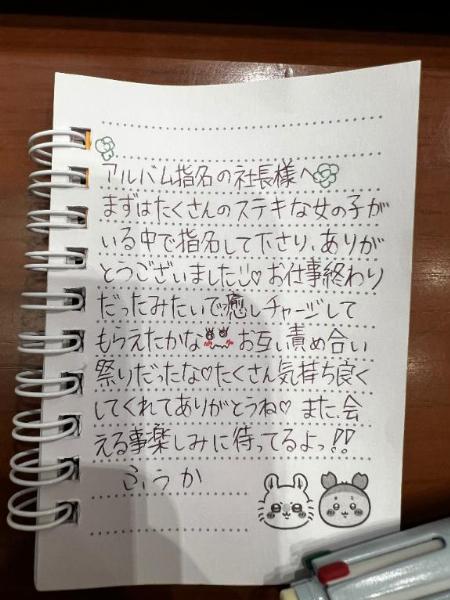 アルバム指名の社長様へ
まずはたくさんのステキな女の子が
いる中で指名して下さり、ありが
とうございました♡お仕事終わり
だったみたいで癒しチャージして
もらえたかな お互い責め合い
祭りだったな♡たくさん気持ち良く
してくれてありがとうね♡また、会
える事楽しみに待ってるよっ!!
ふうか